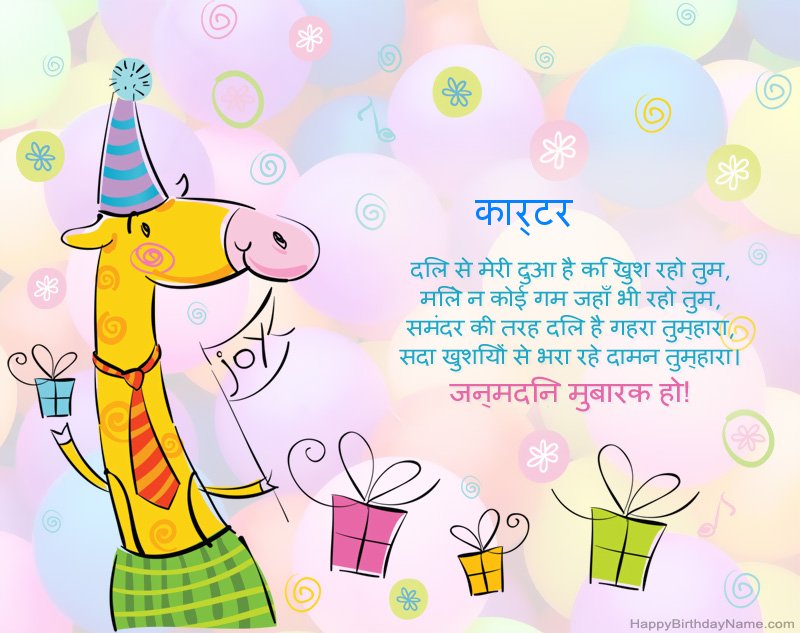 कार्टर
दिल से मेरी दुआ है कि खुश रहो तुम,
मिले न कोई गम जहाँ भी रहो तुम,
समंदर की तरह दिल है गहरा तुम्हारा,
सदा खुशियों से भरा रहे दामन तुम्हारा।
जन्मदिन मुबारक हो!
joy
HappyBirthdayName.com